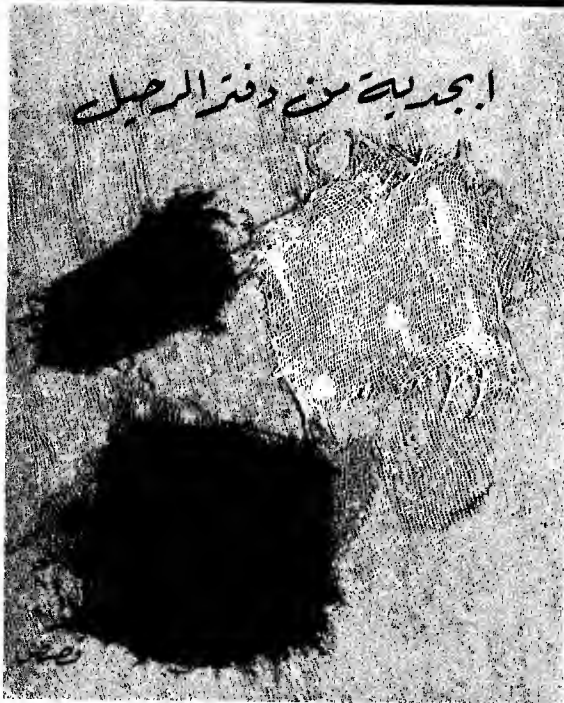 ابجدية من دفتر الرحيل